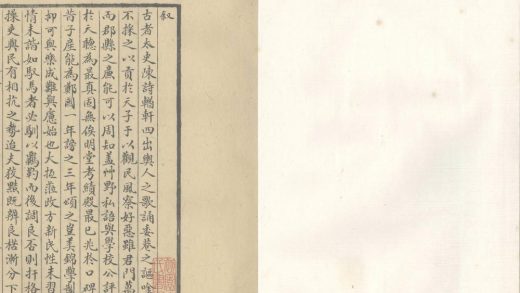 叙
古者太史陳詩輶軒四出輿人之歌誦委巷之謳唫
不採之以貢於天子于以觀民風察好惡雖君門萬
而郡縣之廉能可以周知蓋艸野私語與學校公評
於天聽為最真固無俟明堂考績殿最已兆於口碑
昔子産能為鄭國一年謗之三年頌之豈美錦學製
却可與樂成難與慮始也大抵蒞政方新民性未習
情未諧如馭馬者必馴以羈靮而後調良否則扞格
操吏與民有相抗之勢迨夫狡黠既辨良楛漸分下